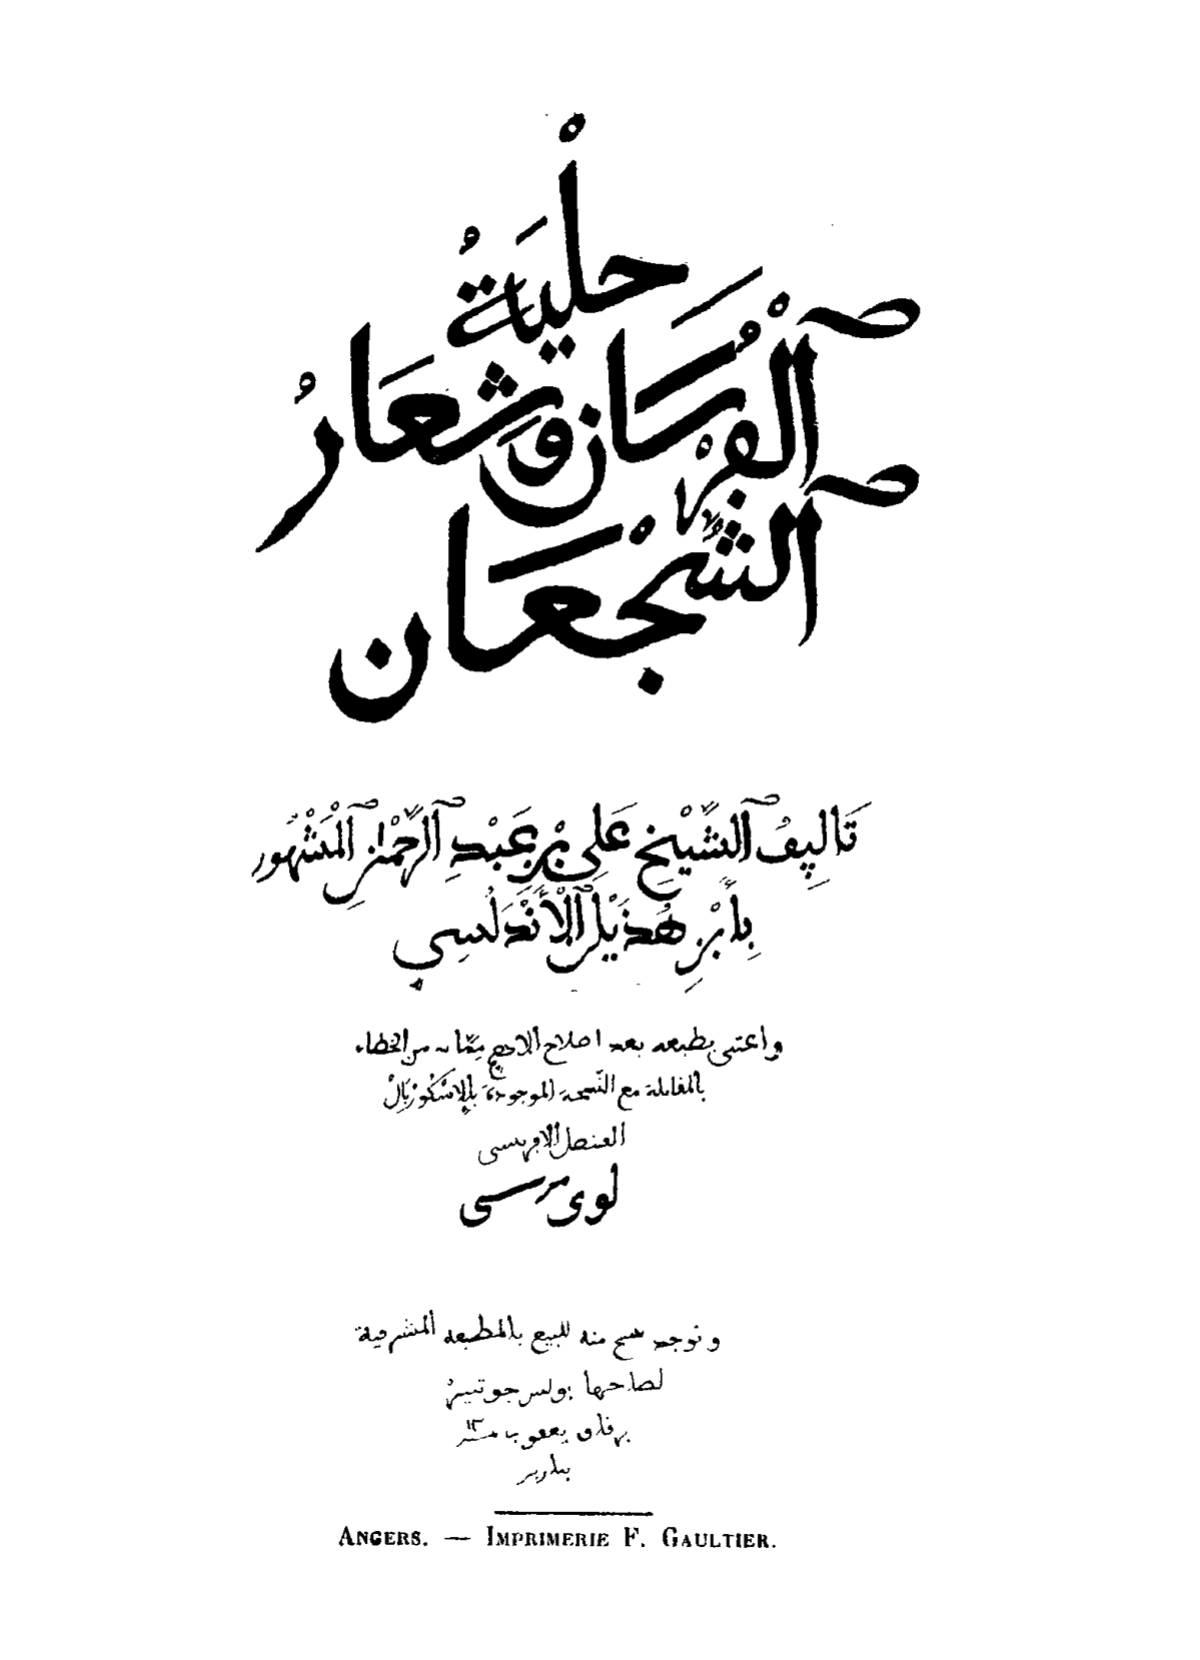 حلْيَةُ
ٱلْفُرْسَان وَشعَارُ
ٱلشُّجْعَان
تَالِيفُ ٱلشَّيْخِ عَلِي بْنِ عَبْدِ ٱلرَّحْمٰنِ ٱلْمَشْهُور
بِٱبْنِ هُذَيْل ٱلْأَنْدَلُسِي
واعتنى بطبعه بعد اصلاح من الخطاء
بالمقابلة مع النّسخة الموجودة بالإسْكُوْرِيَالْ
القنصل الافرنسى
لوى مرسى
وتوجد نسخ منه للبيع بالمطبعة المشرقية
لصاحبها بولس جوتنير
بزقاق يعقوب ١٣
بباريز
ANGERS. — IMPRIMERIE F. GAULTIER.